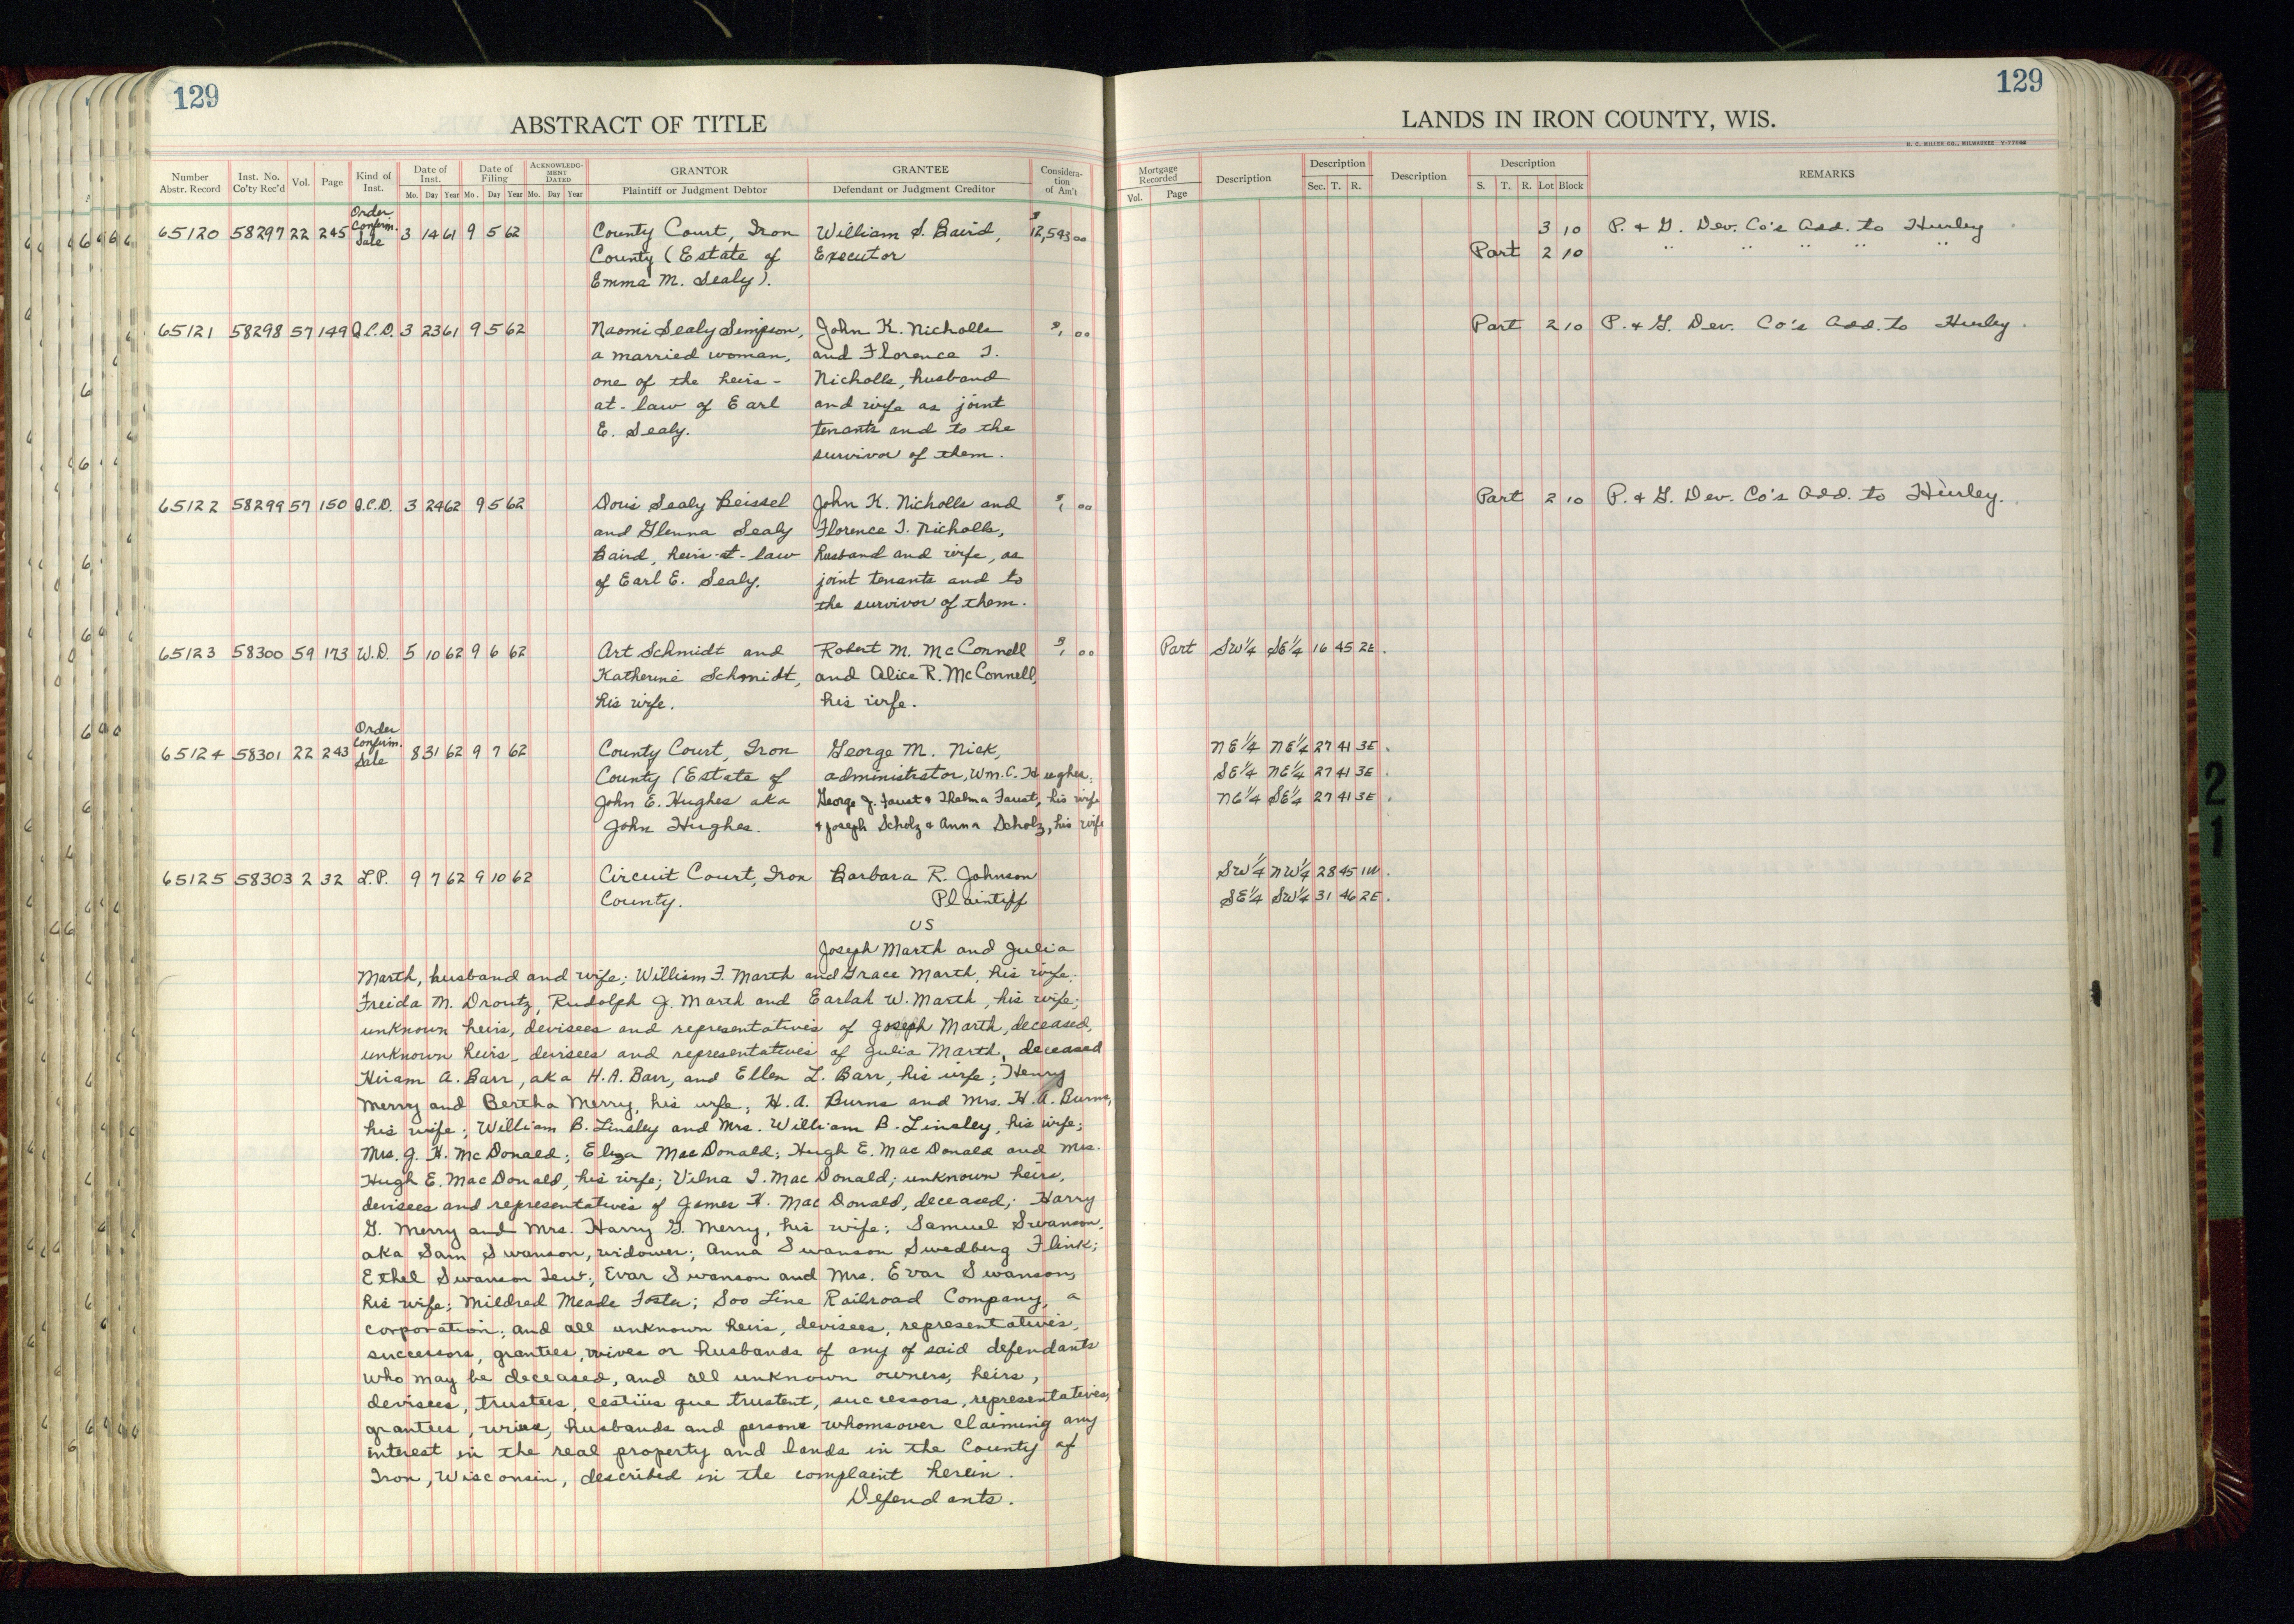 129
ABSTRACT OF TITLE
Number Abstr. Record
Inst. No. Co'ty Rec'd
Vol.
Page
Kind of Inst.
Date of Inst.
Mo. Day Year
Date of Filing
Mo. Day Year
ACKNOWLEDGMENT DATED
Mo. Day Year
GRANTOR
Plaintiff or Judgment Debtor
GRANTEE
Defendant or Judgment Creditor
Consideration of Am't
Order
Confirm.
Sale
65120 58297 22 245 3 14 61 9 5 62 County Court, Iron William S. Baird, $12,543 00
County (Estate of Executor
Emma M. Sealy).
65121 58298 57 149 Q.C.D. 3 23 61 9 5 62 Naomi Sealy Simpson, John K. Nicholls $1 00
a married woman, and Florence I.
one of the heirs- Nicholls, husband
at-law of Earl and wife as joint
E. Sealy. tenants and to the
survivor of them.
65122 58299 57 150 Q.C.D. 3 24 62 9 5 62 Doris Sealy Beissel John K. Nicholls and $1 00
and Glenna Sealy Florence I. Nicholls,
Baird, heirs-at-law husband and wife, as
of Earl E. Sealy. joint tenants and to
the survivor of them.
65123 58300 59 173 W.D. 5 10 62 9 6 62 Art Schmidt and Robert M. McConnell $1 00
Katherine Schmidt, and Alice R. McConnell,
his wife. his wife.
Order
Confirm.
Sale
65124 58301 22 243 8 31 62 9 7 62 County Court, Iron George M. Nick,
County (Estate of administrator, Wm. C. Hughes,
John E. Hughes aka George J. Faust & Thelma Faust, his wife
John Hughes. & Joseph Scholz & Anna Scholz, his wife
65125 58303 2 32 L.P. 9 7 62 9 10 62 Circuit Court, Iron Barbara R. Johnson
County. Plaintiff
VS
Joseph Marth and Julia
Marth, husband and wife; William F. Marth and Grace Marth, his wife;
Freida M. Droutz, Rudolph J. Marth and Earlah W. Marth, his wife;
unknown heirs, devisees and representatives of Joseph Marth, deceased,
unknown heirs, devisees and representatives of Julia Marth, deceased
Hiram A. Barr, aka H.A. Barr, and Ellen L. Barr, his wife; Henry
Merry and Bertha Merry, his wife; H. A. Burns and Mrs. H. A. Burns,
his wife; William B. Linsley and Mrs. William B. Linsley, his wife;
Mrs. J. K. McDonald; Eliza MacDonald; Hugh E. MacDonald and Mrs.
Hugh E. MacDonald, his wife; Vilna I. MacDonald; unknown heirs,
devisees and representatives of James K. MacDonald, deceased; Harry
G. Merry and Mrs. Harry G. Merry, his wife; Samuel Swanson,
aka Sam Swanson, widower; Anna Swanson Swedberg Flink;
Ethel Swanson Tew; Evar Swanson and Mrs. Evar Swanson,
his wife; Mildred Meade Foster; Soo Line Railroad Company, a
corporation; and all unknown heirs, devisees, representatives,
successors, grantees, wives or husbands of any of said defendants
who may be deceased, and all unknown owners, heirs,
devisees, trustees, cestiis que trustent, successors, representatives,
grantees, wives, husbands and persons whomsover claiming any
interest in the real property and lands in the County of
Iron, Wisconsin, described in the complaint herein.
Defendants.
129
LANDS IN IRON COUNTY, WIS.
H. C. MILLER CO., MILWAUKEE
Mortgage Recorded
Vol. Page
Description
Description
Sec. T. R.
Description
Description
S. T. R. Lot Block
REMARKS
3 10 P. & G. Dev. Co's Add. to Hurley
Part 2 10 " " " " "
Part 2 10 P. & G. Dev. Co's Add. to Hurley.
Part 2 10 P. & G. Dev. Co's Add. to Hurley.
Part SW¼ SE¼ 16 45 2E.
NE¼ NE¼ 27 41 3E.
SE¼ NE¼ 27 41 3E.
NE¼ SE¼ 27 41 3E.
SW¼ NW¼ 28 45 1W.
SE¼ SW¼ 31 46 2E.
21